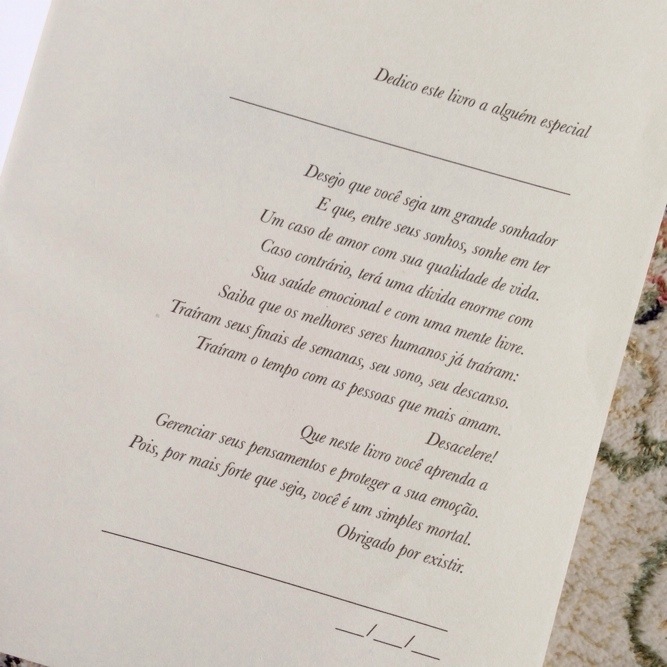 Dedico este livro a alguém especial
Desejo que você seja um grande sonhador
E que, entre seus sonhos, sonhe em ter
Um caso de amor com sua qualidade de vida.
Caso contrário, terá uma dívida enorme com
Sua saúde emocional e com uma mente livre.
Saiba que os melhores seres humanos já traíram:
Traíram seus finais de semanas, seu sono, seu descanso.
Traíram o tempo com as pessoas que mais amam.
Desacelere!
Que neste livro você aprenda a
Gerenciar seus pensamentos e proteger a sua emoção.
Pois, por mais forte que seja, você é um simples mortal.
Obrigado por existir.
__/__/__